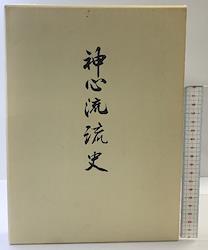 神心流流史